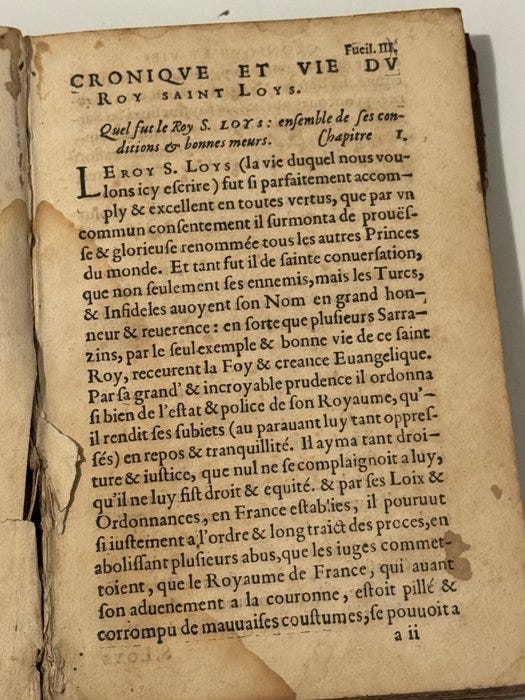 Fueil. III.
CRONIQVE ET VIE DV
ROY SAINT LOYS.
Quel fut le Roy S. LOYS: ensemble de ses con-
ditions & bonnes meurs. Chapitre I.
LE ROY S. LOYS (la vie duquel nous vou-
lons icy escrire) fut si parfaitement accom-
ply & excellent en toutes vertus, que par vn
commun consentement il surmonta de prouës-
se & glorieuse renommée tous les autres Princes
du monde. Et tant fut il de sainte conuersation,
que non seulement ses ennemis, mais les Turcs,
& Infideles auoyent son Nom en grand hon-
neur & reuerence: en sorte que plusieurs Sarra-
zins, par le seul exemple & bonne vie de ce saint
Roy, receurent la Foy & creance Euangelique.
Par sa grand' & incroyable prudence il ordonna
si bien de l'estat & police de son Royaume, qu'-
il rendit ses subiets (au parauant luy tant oppres-
sés) en repos & tranquillité. Il ayma tant droi-
ture & iustice, que nul ne se complaignoit a luy,
qu'il ne luy fist droit & equité. & par ses Loix &
Ordonnances, en France establies, il pouruut
si iustement a l'ordre & long traict des proces, en
abolissant plusieurs abus, que les iuges commet-
toient, que le Royaume de France, qui auant
son aduenement a la couronne, estoit pillé &
corrompu de mauuaises coustumes, se pouuoit a
a ii